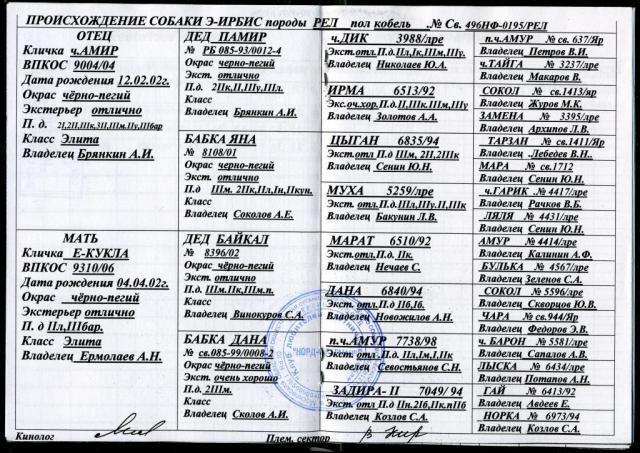 ПРОИСХОЖДЕНИЕ СОБАКИ Э-ИРБИС породы РЕЛ пол кобель .№ Св. 496НФ-0195/РЕЛ
ОТЕЦ
Кличка ч.АМИР
ВПКОС 9004/04
Дата рождения 12.02.02г.
Окрас чёрно-пегий
Экстерьер отлично
П. д. 2I,2II,IIIк,3II,IIIм.IIу,IIIбар
Класс Элита
Владелец Брянкин А.И.
МАТЬ
Кличка Е-КУКЛА
ВПКОС 9310/06
Дата рождения 04.04.02г.
Окрас чёрно-пегий
Экстерьер отлично
П. д IIл,IIIбар.
Класс Элита
Владелец Ермолаев А.Н.
ДЕД ПАМИР
№ РБ 085-93/0012-4
Окрас черно-пегий
Экст. отлично
П.д. 2IIк,II,IIIу,IIIл.
Класс
Владелец Брянкин А.И.
БАБКА ЯНА
№ 8108/01
Окрас черно-пегий
Экст. отлично
П.д IIIм. 2IIк,IIл,Iн,IIкун.
Класс
Владелец Соколов А.Е.
ДЕД БАЙКАЛ
№ 8396/02
Окрас чёрно-пегий
Экст. отлично
П.д. IIIм.IIк,IIIм.п.
Класс
Владелец Винокуров С.А.
БАБКА ДАНА
№ св.085-99/0008-2
Окрас чёрно-пегий
Экст. очень хорошо
П.д. 2IIIм.
Класс
Владелец Сколов А.И.
ч.ДИК 3988/лре
Экст.отл.П.д.IIл,Iк,IIIм,IIIу.
Владелец Николаев Ю.А.
ИРМА 6513/92
Экс.оч.хор.П.д.II,IIIк.IIIм,IIIу
Владелец Золотов А.А.
ЦЫГАН 6835/94
Экст.отл.П.д IIIм, 2II,2IIIк
Владелец Сенин Ю.Н.
МУХА 5259/лре
Экст.отл.П.д.IIл,IIIу.II,IIIк
Владелец Бакунин Л.В.
МАРАТ 6510/92
Экст. отл.П.д. IIк.
Владелец Нечаев С.
ДАНА 6840/94
Экст. отл. П.д IIб,Iб.
Владелец Новожилов А.Н.
п.ч.АМУР 7738/98
Экст. отл П.д. IIл,Iм,I,IIк
Владелец Севостьянов С.Н.
ЗАДИРА- II 7049/ 94
Экст. отл П.д IIн.2Iб,IIк.пIIб
Владелец Козлов С.А.
п.ч.АМУР № св. 637/Яр
Владелец Петров В.И.
ч.ТАЙГА № 3237/лре
Владелец Макаров В.
СОКОЛ № св.1413/яр
Владелец Журов М.К.
ЗАМЕНА № 3395/лре
Владелец Архипов Л.В.
ТАРЗАН № св.1411/Яр
Владелец .Лебедев В.Н..
МАРА № св.1712
Владелец Сенин Ю.Н.
ч.ГАРИК .№ 4417/лре
Владелец Рачков В.Б.
ЛЯЛЯ № 4431/лре
Владелец Сенин Ю.Н.
АМУР № 4414/лре
Владелец Калинин А.Ф.
БУЛЬКА № 4567/лре
Владелец Зеленов С.А.
СОКОЛ № 5596/лре
Владелец Скворцов Ю.В.
ЧАРА № св.944/Яр
Владелец Федоров Э.В.
ч. БАРОН № 5581/лре
Владелец Сапалов А.В.
ЛЫСКА № 6434/лре
Владелец Потапов А.Н.
ГАЙ № 6413/92
Владелец Авдеев Е.
НОРКА № 6973/94
Владелец Козлов С.А.
Кинолог
Плем. сектор